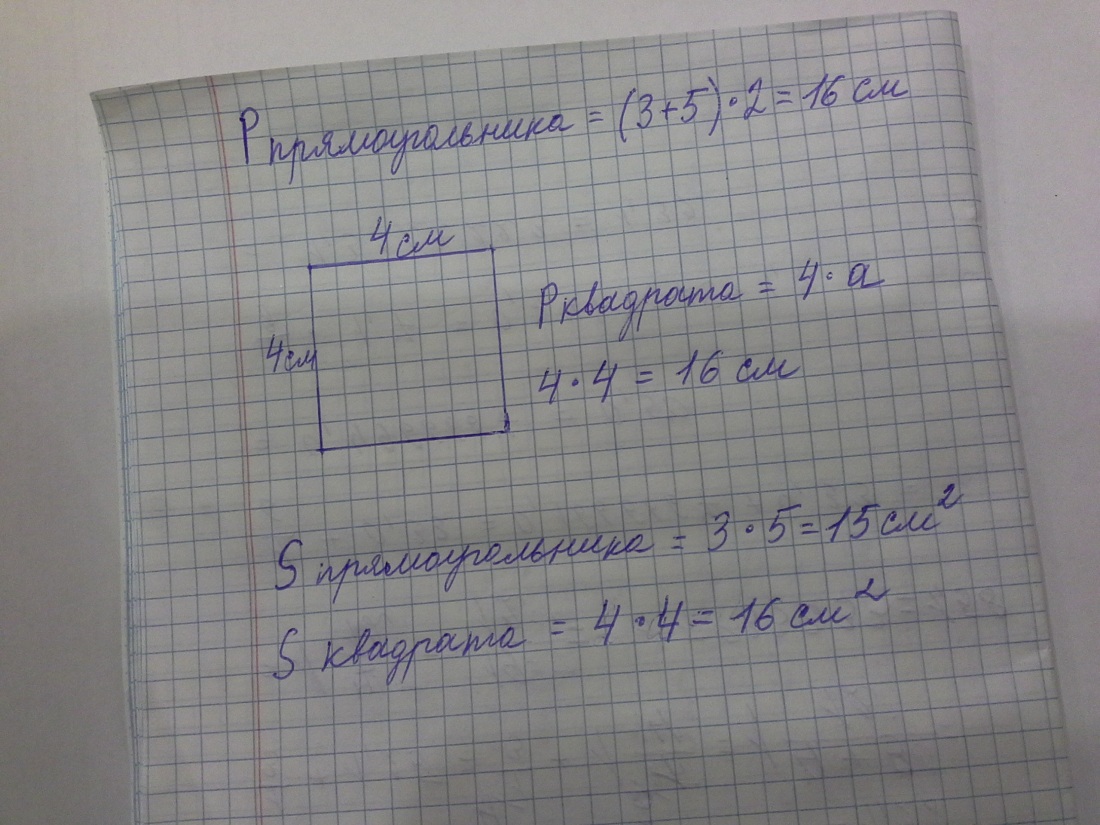 P прямоугольника = (3+5)·2=16 см
4 см
P квадрата = 4·a
4 см
4·4 = 16 см
S прямоугольника = 3·5=15 см²
S квадрата = 4·4= 16 см²